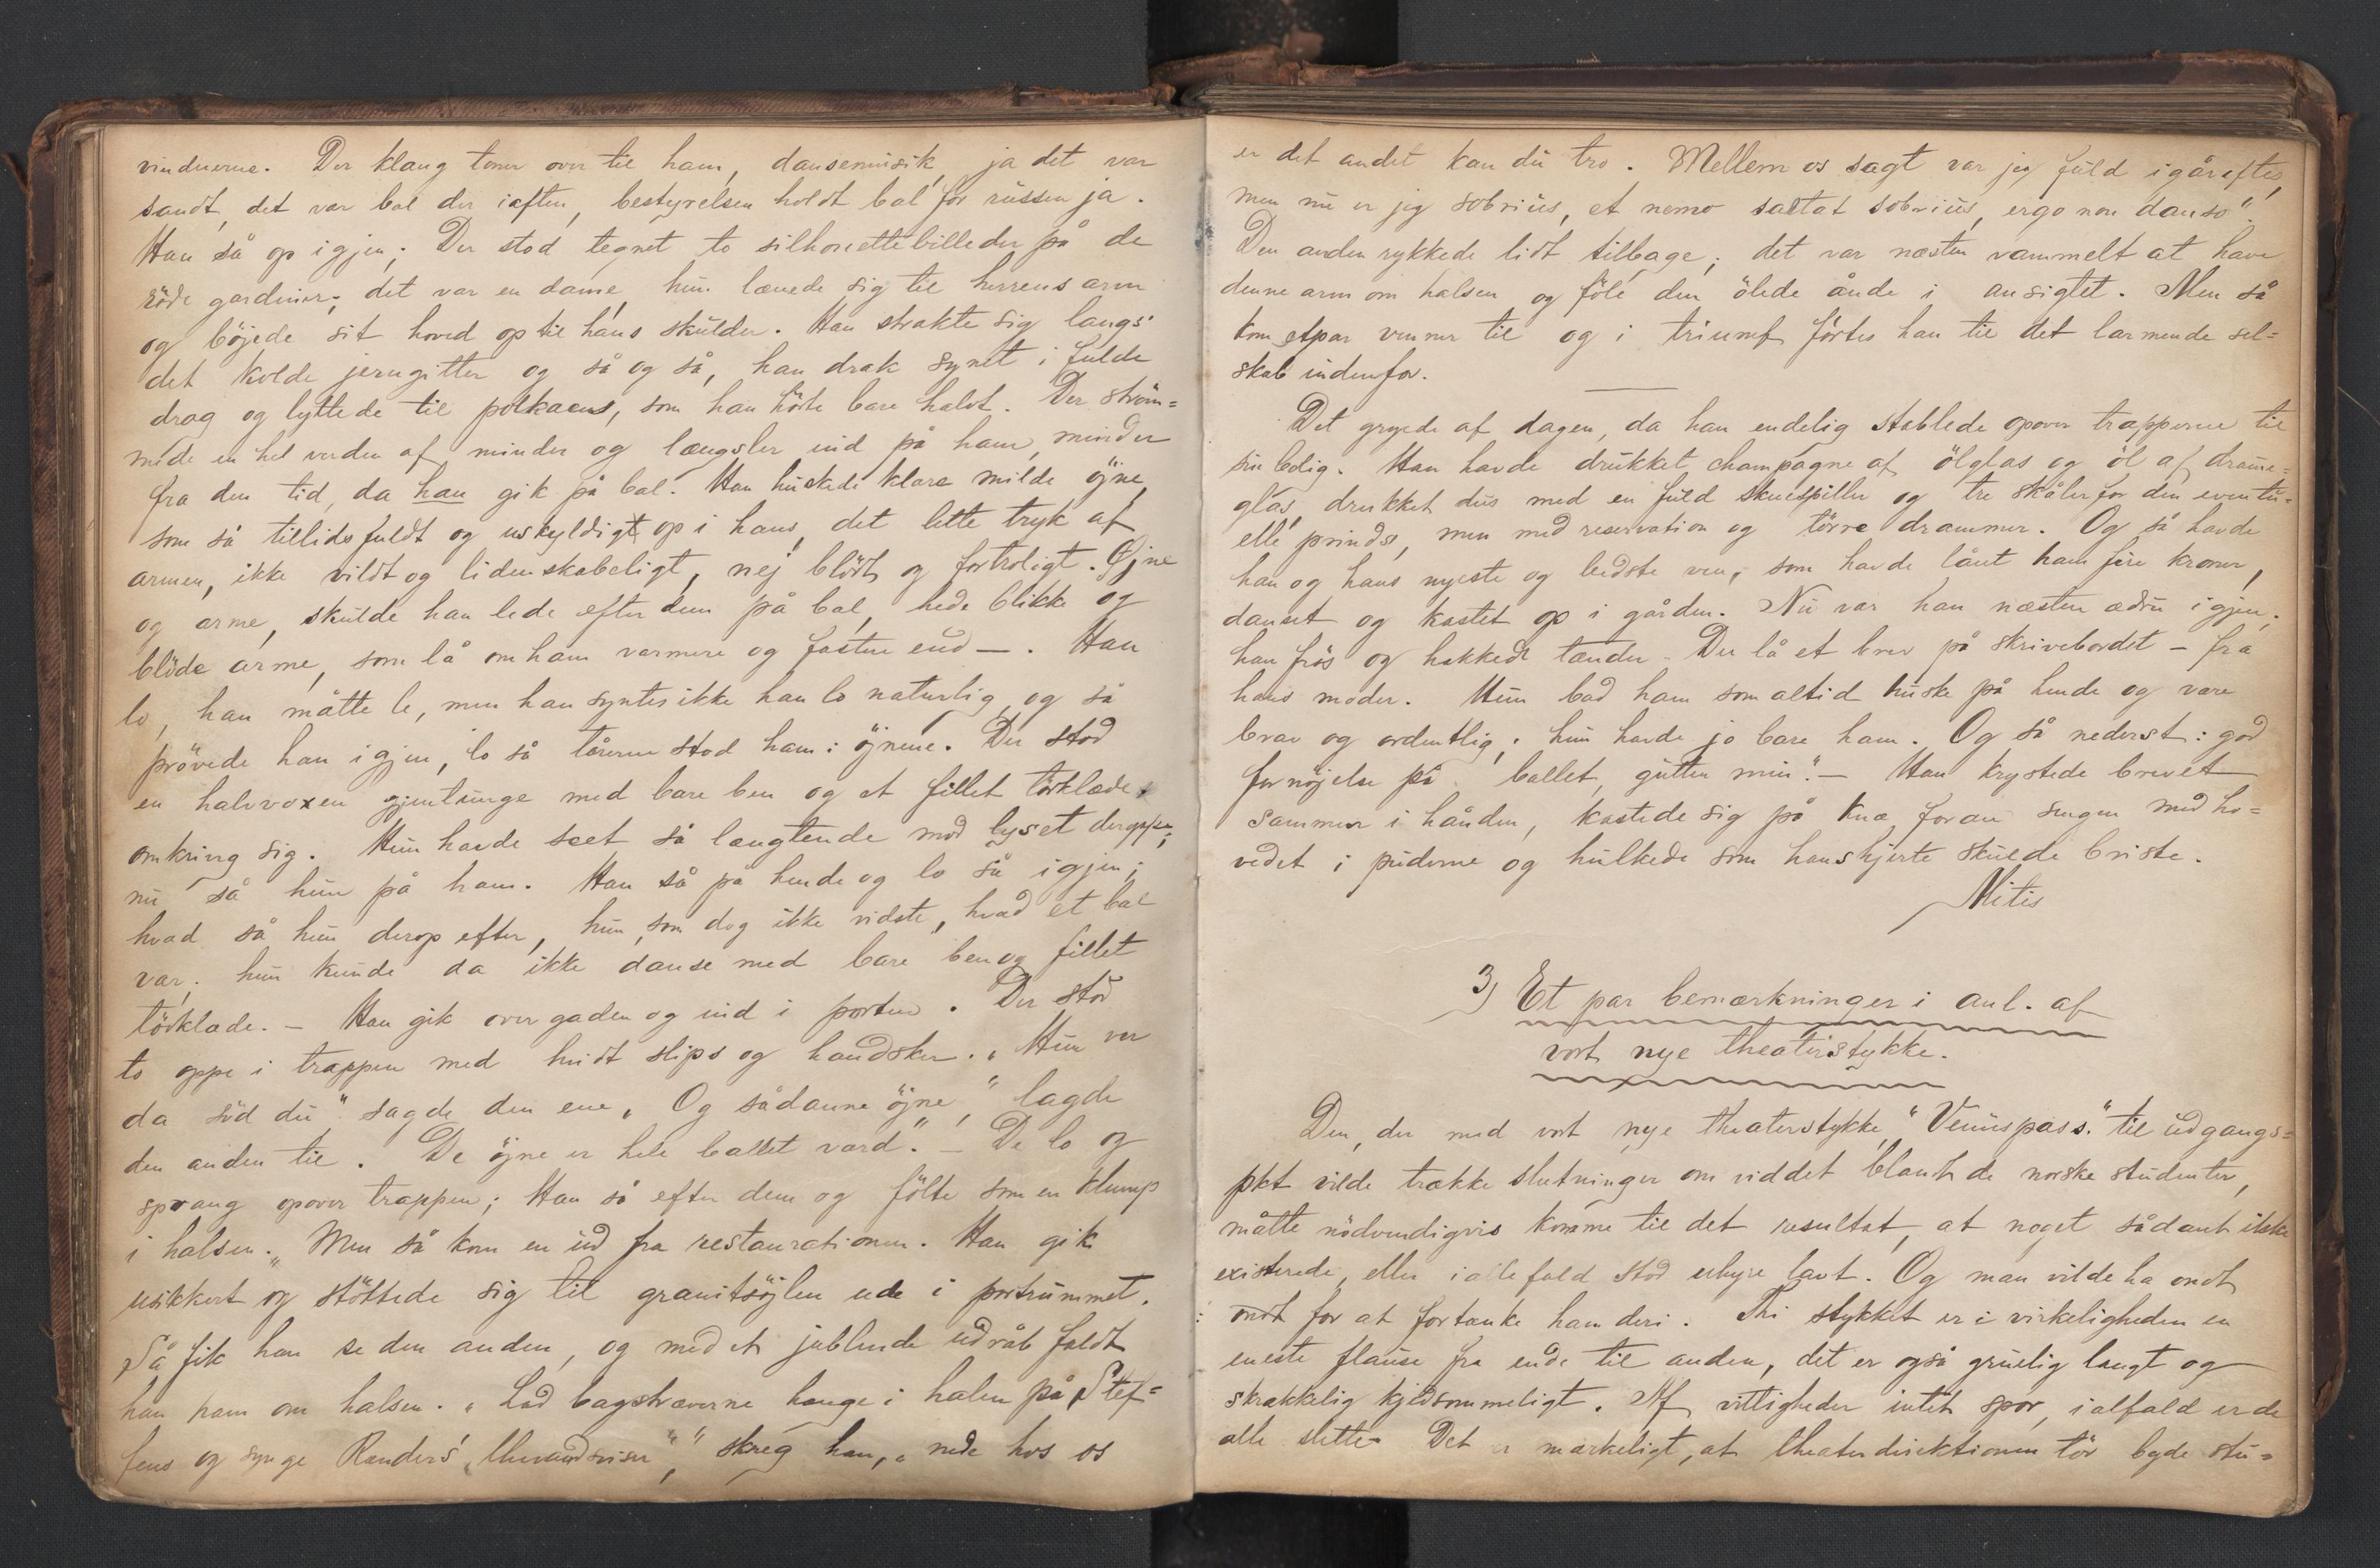 vinduerne. Der klang toner over til ham, dansemusik, ja det var
sandt, det var bal der iaften, bestyrelsen holdt bal for russen ja.
Han så op igjen; Der stod tegnet to silhouettebilleder på de
röde gardiner; det var en dame, hun lænede sig til herrens arm
og böjede sit hoved op til hans skulder. Han strakte sig langs
det kolde jerngitter og så og så, han drak synet i fulde
drag og lyttede til polkaens, som han hörte bare halvt. Der ström=
mede en hel verden af minder og længsler ind på ham, minder
fra den tid, da han gik på bal. Han huskede klare milde öjne,
som så tillidsfuldt og uskyldigt op i hans, det lette tryk af
armen, ikke vildt og lidenskabeligt, nej blödt og fortroligt. Øjne
og arme, skulde han lede efter dem på bal, hede blikke og
blöde arme, som lå om ham varmere og fastere end —. Han
lo, han måtte le, men han syntes ikke han lo naturlig, og så
prövede han igjen, lo så tårerne stod ham i öjnene. Der stod
en halvvoxen gjentunge med bare ben og et fillet törklæde
omkring sig. Hun havde seet så længtende mod lyset deroppe;
nu så hun på ham. Han så på hende og lo så igjen;
hvad så hun derop efter, hun, som dog ikke vidste, hvad et bal
var; hun kunde da ikke danse med bare ben og fillet
törklæde. — Han gik over gaden og ind i porten. Der stod
to oppe i trappen med hvidt slips og handsker. „Hun var
da söd du" sagde den ene, „Og sådanne öjne," lagde
den anden til. „De öjne er hele ballet værd." — De lo og
sprang opover trappen; Han så efter dem og fölte som en klump
i halsen. Men så kom en ud fra restaurationen. Han gik
usikkert og stöttede sig til granitsöjlen ude i portrummet.
Så fik han se den anden, og med et jublende udråb faldt
han ham om halsen. „Lad bagstræverne hænge i halen på Stef=
fens og synge Randers' , skreg han, „nede hos os
er det andet kan du tro. Mellem os sagt var jeg fuld igåraftes,
men nu er jeg sobrius, et nemo saltat sobrius, ergo non danso".
Den anden rykkede lidt tilbage; det var næsten vammelt at have
denne arm om halsen og föle den ölede ånde i ansigtet. Men så
kom etpar venner til og i triumf förtes han til det larmende sel=
skab indenfor.
Det gryede af dagen, da han endelig stablede opover trapperne til
sin bolig. Han havde drukket champagne af ölglas og öl af dramme=
glas, drukket dus med en fuld skuespiller og tre skåler for den eventu=
elle prinds, men med reservation og törre drammer. Og så havde
han og hans nyeste og bedste ven, som havde lånt ham fire kroner,
danset og kastet op i gården. Nu var han næsten ædru igjen;
han frös og hakkede tænder. Der lå et brev på skrivebordet – fra
hans moder. Hun bad ham som altid huske på hende og være
brav og ordentlig; hun havde jo bare ham. Og så nederst: god
fornöjelse på ballet, gutten min". — Han krystede brevet
sammen i hånden, kastede sig på knæ foran sengen med ho=
vedet i puderne og hulkede som hans hjerte skulde briste.
Mitis
3) Et par bemærkninger i anl. af
vort nye theaterstykke.
Den, der med vort nye theaterstykke, "Venuspass." til udgangs=
pkt vilde trække slutninger om viddet blandt de norske studenter,
måtte nödvendigvis komme til det resultat, at noget sådant ikke
existerede, eller iallefald stod uhyre lavt. Og man vilde ha ondt
ondt for at fortænke ham deri. Thi stykket er i virkeligheden en
eneste flause fra ende til anden, det er også gruelig langt og
skrækkelig kjedsommeligt. Af vittigheder intet spor, ialfald er de
alle slette. Det er mærkeligt, at theaterdirektionen tör byde stu=